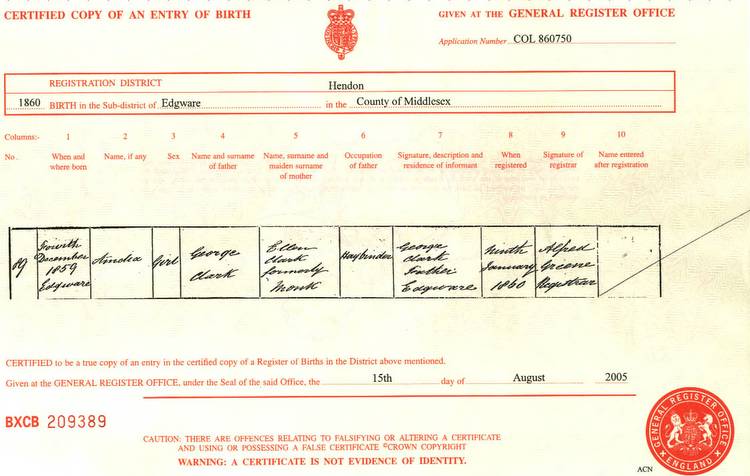 CERTIFIED COPY OF AN ENTRY OF BIRTH
GIVEN AT THE GENERAL REGISTER OFFICE
Application Number COL 860750
REGISTRATION DISTRICT Hendon
1860 BIRTH in the Sub-district of Edgware in the County of Middlesex
Columns:- 1 2 3 4 5 6 7 8 9 10
No. When and where born Name, if any Sex Name and surname of father Name, surname and maiden surname of mother Occupation of father Signature, description and residence of informant When registered Signature of registrar Name entered after registration
December 1859 Edgware
Girl
George Clark
Ellen Clark formerly Monk
Haybinder
George Clark Father Edgware
Ninth January 1860
Alfred Greene Registrar
CERTIFIED to be a true copy of an entry in the certified copy of a Register of Births in the District above mentioned.
Given at the GENERAL REGISTER OFFICE, under the Seal of the said Office, the 15th day of August 2005
BXCB 209389
CAUTION: THERE ARE OFFENCES RELATING TO FALSIFYING OR ALTERING A CERTIFICATE
AND USING OR POSSESSING A FALSE CERTIFICATE ©CROWN COPYRIGHT
WARNING: A CERTIFICATE IS NOT EVIDENCE OF IDENTITY.
GENERAL REGISTER OFFICE ENGLAND
ACN